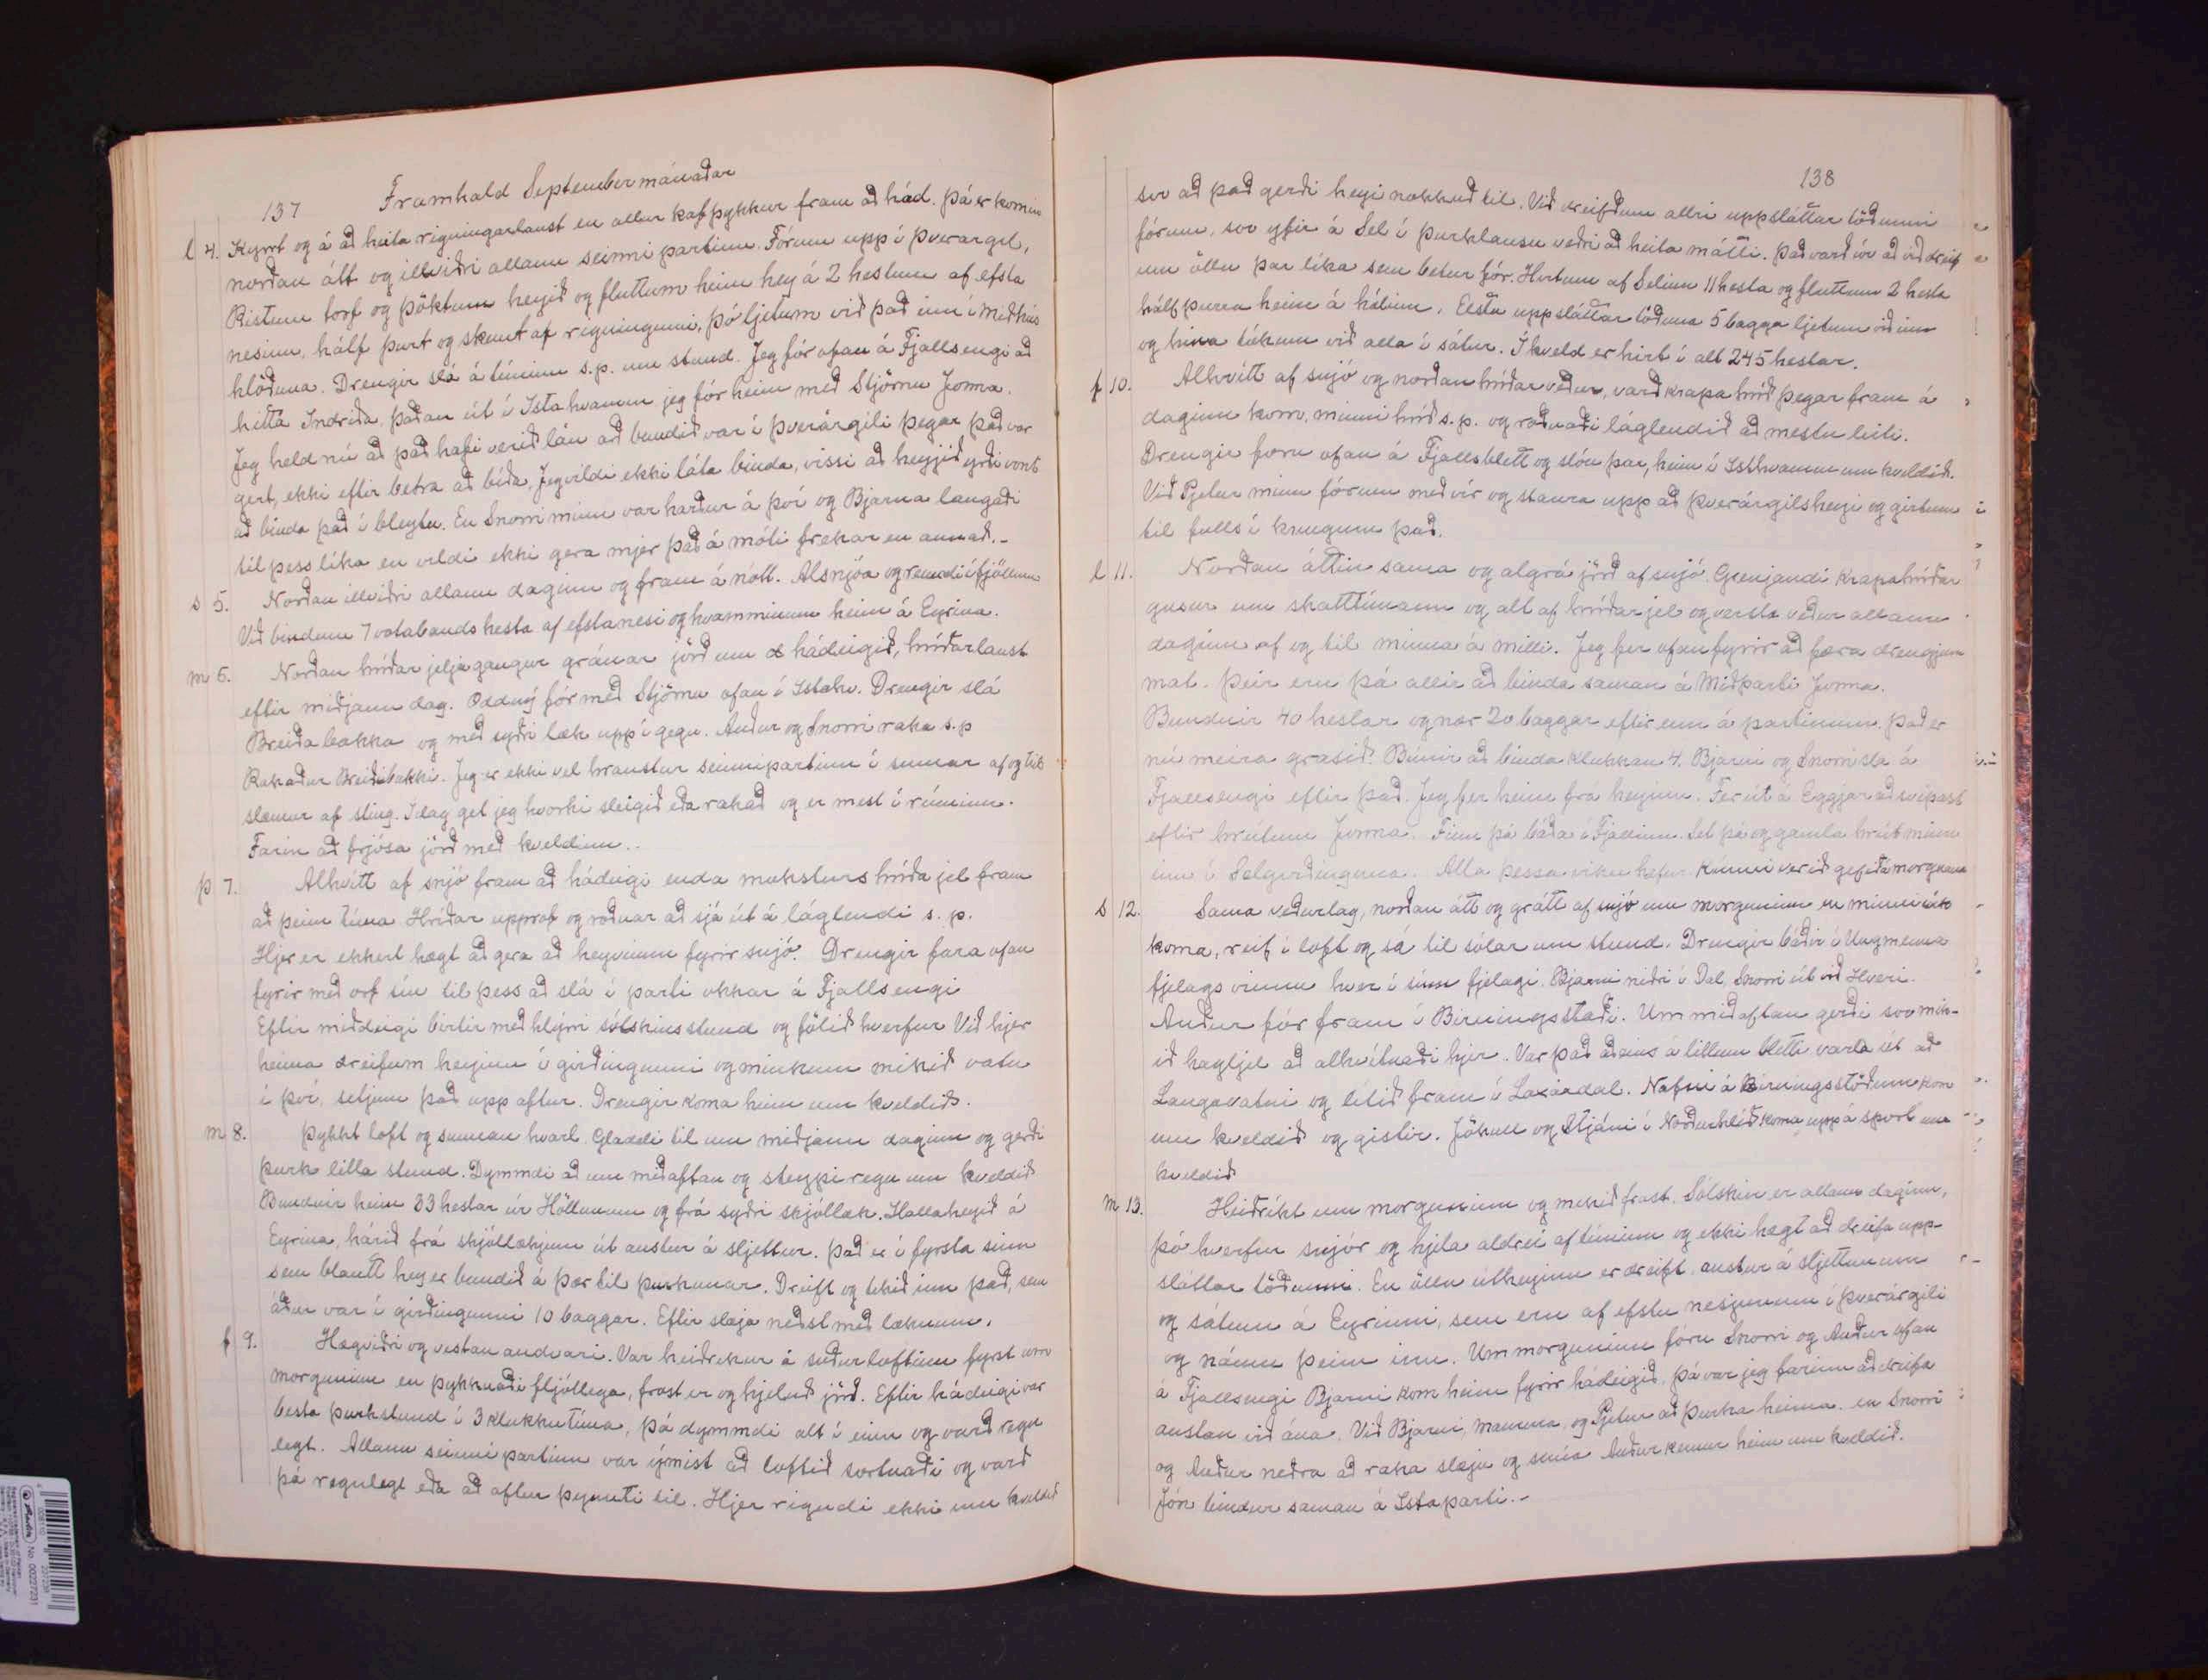 137 Framhald Septembermánaðar
l 4. Kyrrt og á að heita rigningarlaust en allur kafþykkur fram að hád. Þá er komin
norðan átt og illviðri allann seinni partinn. Fórum upp í Þverárgil,
Ristum torf og þöktum heyið og fluttum heim hey á 2 hestum af efsta
nesinu, hálf þurt og skemt af rigningunni, þó ljetum við það inn í Miðhús
hlöðuna. Drengir slá á túninu s.p. um stund. Jeg fór ofan á Fjallsengi að
hitta Indriða, þaðan út í Ístahvamm jeg fór heim með Stjörnu Jonna.
Jeg held nú að það hafi verið lán að bundið var í Þverárgili þegar það var
gert, ekki eftir betra að bíða, Jeg vildi ekki láta binda, vissi að heyjið yrði vont
að binda það í bleytu. En Snorri minn var harður á því og Bjarna langaði
til þess líka en vildi ekki gera mjer það á móti frekar en annað.-
s 5. Norðan illviðri allann daginn og fram á nótt. Alsnjóa og renndi í fjöllum
Við bindum 7 votabands hesta af efstanesi og hvamminum heim á Eyrina.
m 6. Norðan hríðar jeljagangur gránar jörð um hádeigið, hríðarlaust
eftir miðjann dag. Oddný fór með Stjörnu ofan í Ístahv. Drengir slá
Breiðabakka og með syðri læk upp í gegn. Auður og Snorri raka s.p
Rakaður Breiðibakki. Jeg er ekki vel hraustur seinnipartinn í sumar af og til
slæmur af sting. Í dag get jeg hvorki sleigið eða rakað og er mest í rúminu.
Farin að frjósa jörð með kveldinu..
þ 7. Alhvítt af snjó fram að hádeigi enda moksturs hríða jel fram
að þeim tíma. Hríðar upprof og roðnar að sjá út á láglendi s. p.
Hjer er ekkert hægt að gera að heyvinnu fyrir snjó. Drengir fara ofan
fyrir með orf sín til þess að slá í parti okkar á Fjallsengi
Eftir miðdeigi birtir með hlýrri sólskinsstund og fölið hverfur Við hjer
heima dreifum heyinu í girðingunni og minkum mikið vatn
í því, setjum það upp aftur. Drengir koma heim um kveldið.
m 8. Þykkt loft og sunnan hvarl. Gladdi til um miðjann daginn og gerði
þurk litla stund. Dymmdi að um miðaftan og steypi regn um kveldið
Bundnir heim 33 hestar úr Höllunum og frá syðri skjóllæk. Hallaheyið á
Eyrina, hárið frá skjóllækjum út austur á sljettur. Það er í fyrsta sinn
sem blautt hey er bundið á þær til þurkunar. Dreift og tekið inn það, sem
áður var í girðingunni 10 baggar. Eftir slæja neðst með læknum.
f 9. Hægviðri og vestan andvari. Var heiðrekur á suðurloftinu fyrst um
morguninn en þykknaði fljóllega, frost er og hjeluð jörð. Eftir hádeigi var
besta þurkstund í 3 klukkutíma, þá dymmdi alt í einu og varð regn
legt. Allann seinnipartinn var ýmist að loftið sortnaði og varð
þá regnlegt eða að aftur þynnti til. Hjer rigndi ekki um kveldið
138
svo að það gerði heyi nokkuð til. Við dreifðum allri uppsláttar töðunni
fórum, svo yfir á Sel í þurklausu veðri að heita mátti. Það varð úr að við dreif
um öllu þar líka sem betur fór. Hirtum af Selinu 11 hesta og fluttum 2 hesta
hálf þurra heim á hólinn. Elstu uppsláttar töðuna 5 bagga ljetum við inn
og hina tókum við alla í sátur. Í kveld er hirt í alt 245 hestar.
f 10. Alhvítt af snjó og norðan hríðarveður, varð krapa hríð þegar fram á
daginn kom, minni hríð s.p. og roðnaði láglendið að mestu leiti.
Drengir foru ofan á Fjallsblett og slóu þar, heim í Ísthvamm um kveldið.
Við Pjetur minn fórum með vír og staura upp að Þverárgilsheyi og girtum
til fulls í kringum það.
l 11. Norðan áttin sama og algrá jörð af snjó. Grenjandi krapahríðar
gusur um skatttímann og alt af hríðar jel og versta veður allann
daginn af og til minna á milli. Jeg fer ofan fyrir að færa drengjum
mat. Þeir eru þá allir að binda saman á Miðparti Jonna.
Bundnir 40 hestar og nær 20 baggar eftir enn á partinum. Það er
nú meira grasið. Búnir að binda klukkan 4. Bjarni og Snorri slá á
Fjallsengi eftir það. Jeg fer heim frá heyinu. Fer út á Eggjar að svipast
eftir hrútum Jonna. Finn þá báða í Fjallinu. Let þá og gamla hrút minn
inn í Selgirðinguna. Alla þessa viku hefur kúnni verið gefið á morgnana
s 12. Sama veðurlag, norðan átt og grátt af snjó um morguninn en minni úr
koma, reif í loft og sá til sólar um stund. Drengir báðir í Ungmenna
fjelags vinnu hver í sínu fjelagi. Bjarni niðri í Dal, Snorri út við Hveri.
Auður fór fram í Birningsstaði. Um miðaftan gerði svo mik-
ið hagljel að alhvítnaði hjer. Var það aðeins á litlum bletti varla út að
Langavatni og lítið fram í Laxárdal. Nafni á Birningsstöðum kom
um kveldið og gistir. Jökull og Stjáni í Norðurhlíð koma upp á sport um
kveldið
m 13. Heiðríkt um morguninn og mikið frost. Sólskin er allann daginn,
þó hverfur snjór og hjela aldrei af túninu og ekki hægt að dreifa upp-
sláttar töðunni. En öllu útheyinu er dreift, austur á sljettunum
og sátum á Eyrinni, sem eru af efstu nesjunum í Þverárgili
og náum þeim inn. Um morguninn fóru Snorri og Auður ofan
á Fjallsengi Bjarni kom heim fyrir hádeigið, þá var jeg farinn að dreifa
austan við ána. Við Bjarni, mamma, og Pjetur að þurka heima. en Snorri
og Auður neðra að raka slæju og snúa Auður kemur heim um kveldið.
Jón bindur saman á Ístaparti.-